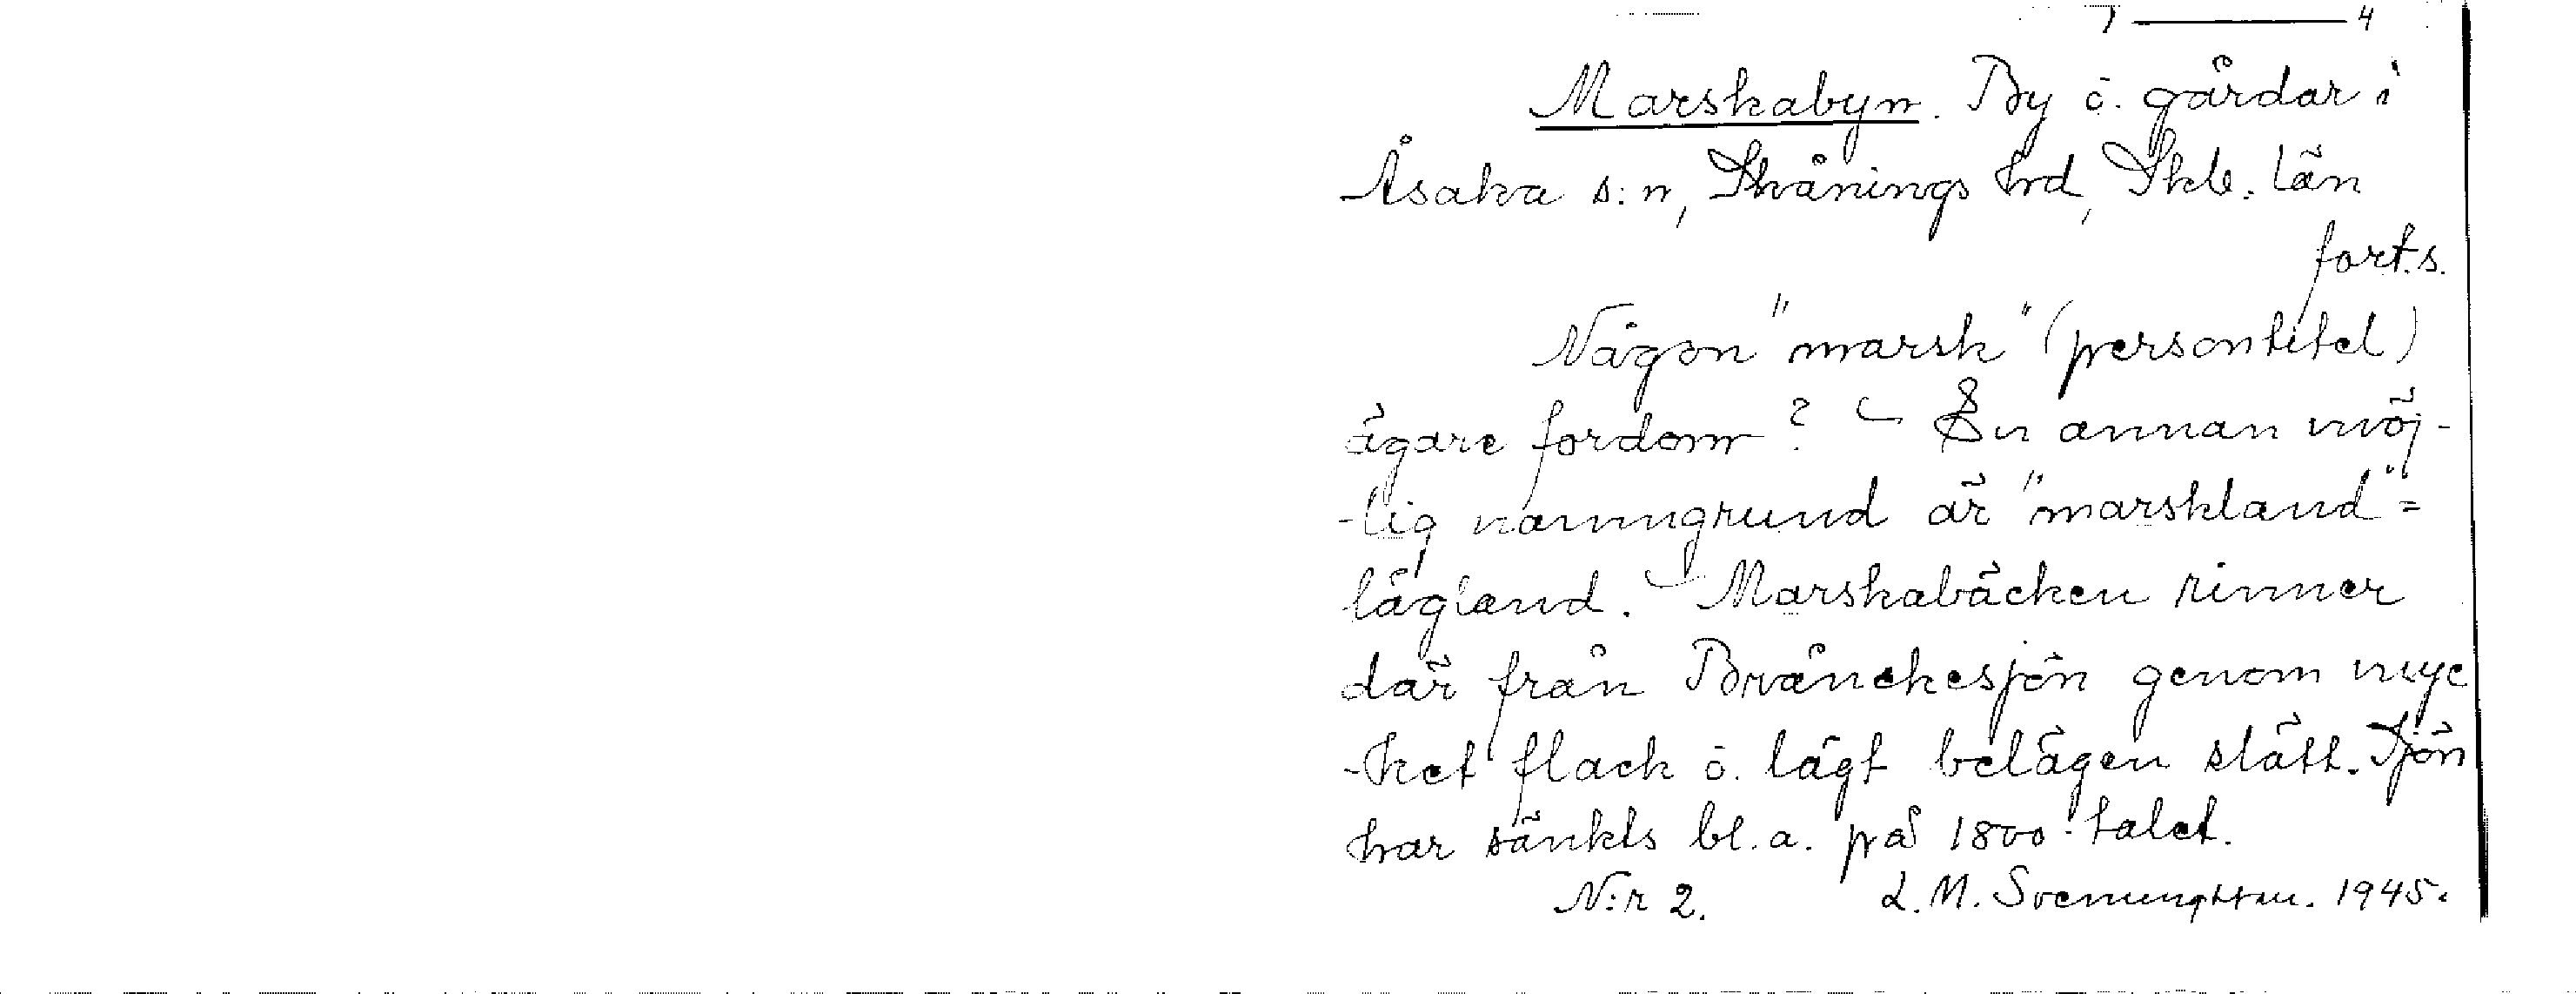 4
Marskabyn. By o. gårdar i
Åsaka s:n, Skånings hrd, Skb. län
forts.
Någon "marsk" (persontitel)
ägare fordom? – En annan möj-
-lig namngrund är "marskland" =
lågland. – Marskabäcken rinner
där från Bränekesjön genom myc
-ket flack o. lågt belägen slätt. Sjön
har sänkts bl.a. på 1800-talet.
N:r 2. L. M. Svenungsson. 1945.